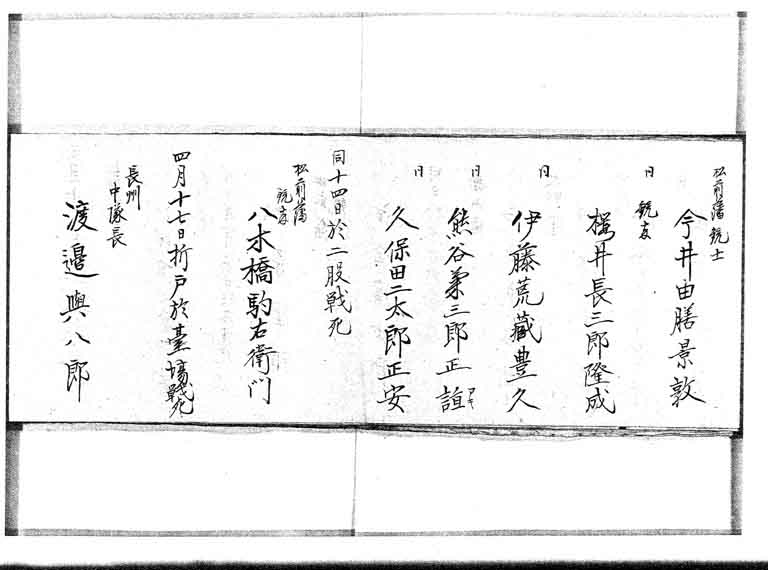 松前藩 銃士
今井由膳景敦
同 銃友
櫻井長三郎隆成
同
伊藤荒藏豊久
同
熊谷菊三郎正誼
同
久保田二太郎正安
同十四日於二股戦死
松前藩
銃友
八木橋駒右衛門
四月十七日折戸於臺場戦死
長州
中隊長
渡邉與八郎